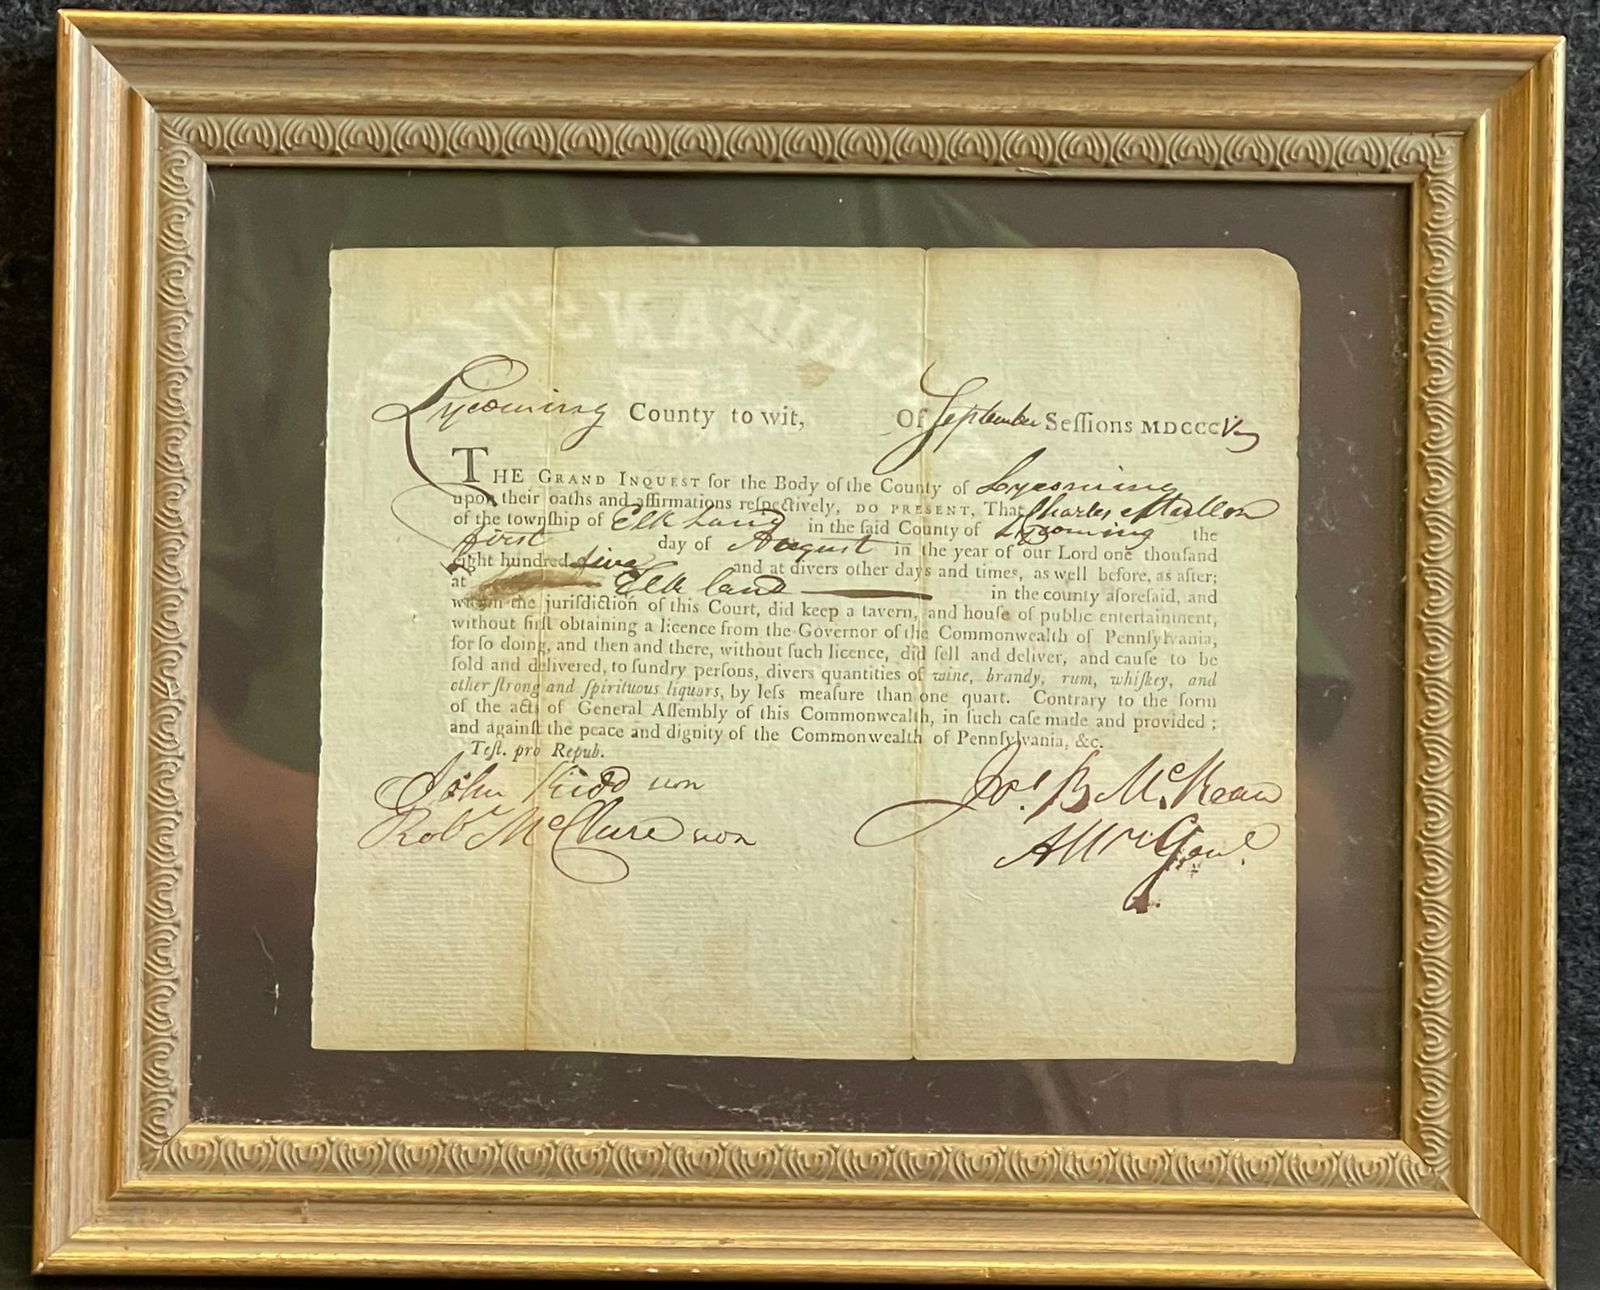 Lycoming County to wit, Of September Seſſions MDCCCV
THE GRAND INQUEST for the Body of the County of Lycoming
upon their oaths and affirmations reſpectively, DO PRESENT, That Charles Mullon
of the townſhip of Elk Land in the ſaid County of Lycoming the
first day of August in the year of our Lord one thouſand
eight hundred five and at divers other days and times, as well before, as after;
at Elk land in the county aforeſaid, and
within the juriſdiction of this Court, did keep a tavern, and houſe of public entertainment,
without firſt obtaining a licence from the Governor of the Commonwealth of Pennſylvania,
for ſo doing, and then and there, without ſuch licence, did ſell and deliver, and cauſe to be
ſold and delivered, to ſundry perſons, divers quantities of wine, brandy, rum, whiſkey, and
other ſtrong and ſpirituous liquors, by leſs meaſure than one quart. Contrary to the form
of the acts of General Aſſembly of this Commonwealth, in ſuch caſe made and provided;
and againſt the peace and dignity of the Commonwealth of Pennſylvania, &c.
Teſt. pro Repub.
John Kidd Jos. B. McKean
Robt McClure